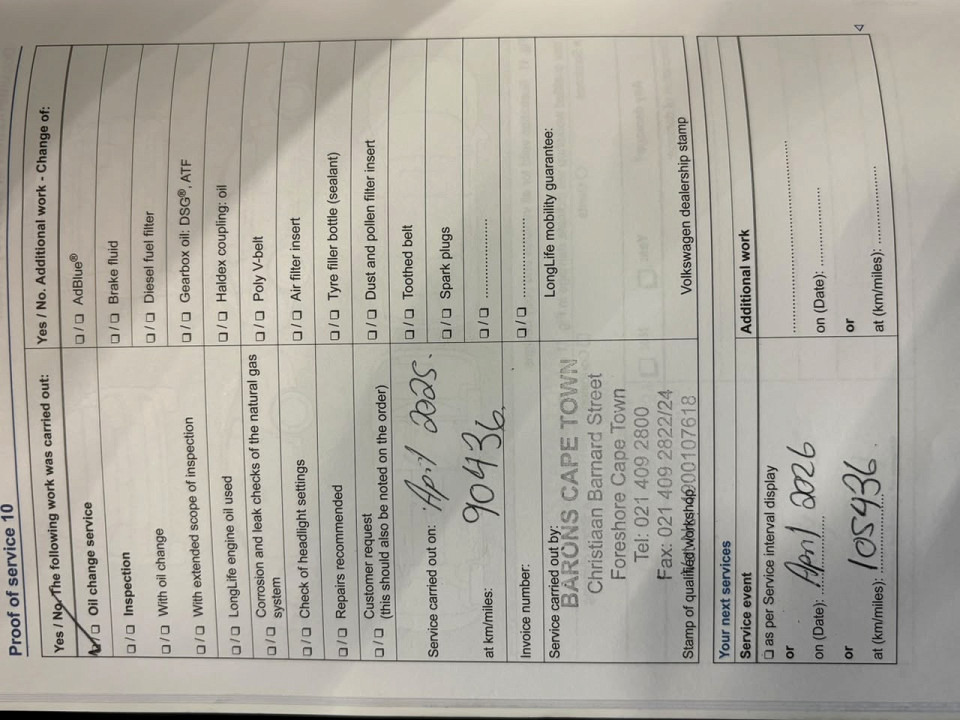 Proof of service 10
Yes / No. The following work was carried out:
☑/☐ Oil change service
☐/☐ Inspection
☐/☐ With oil change
☐/☐ With extended scope of inspection
☐/☐ LongLife engine oil used
☐/☐ Corrosion and leak checks of the natural gas system
☐/☐ Check of headlight settings
☐/☐ Repairs recommended
☐/☐ Customer request
(this should also be noted on the order)
Service carried out on: April 2025.
at km/miles: 90436
Invoice number:
Service carried out by:
BARONS CAPE TOWN
Christian Barnard Street
Foreshore Cape Town
Tel: 021 409 2800
Fax: 021 409 2822/24
Stamp of qualified workshop
Yes / No. Additional work - Change of:
☐/☐ AdBlue®
☐/☐ Brake fluid
☐/☐ Diesel fuel filter
☐/☐ Gearbox oil: DSG®, ATF
☐/☐ Haldex coupling: oil
☐/☐ Poly V-belt
☐/☐ Air filter insert
☐/☐ Tyre filler bottle (sealant)
☐/☐ Dust and pollen filter insert
☐/☐ Toothed belt
☐/☐ Spark plugs
☐/☐ ................
☐/☐ ................
LongLife mobility guarantee:
Volkswagen dealership stamp
Your next services
Service event
☐ as per Service interval display
or
on (Date): April 2026
or
at (km/miles): 105436
Additional work
................
on (Date): ................
or
at (km/miles): ................